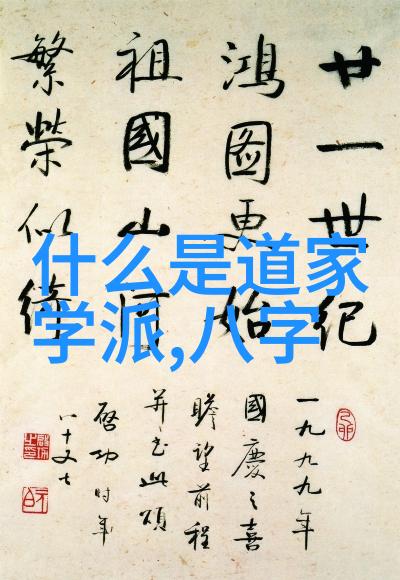 什么是道家
学派,八字
廿一世纪
鸿圖更始
祖國山河
繁榮似绮
一九九九年
國慶之喜
瞻望前程
并书此颂
啓功时年
八十又七